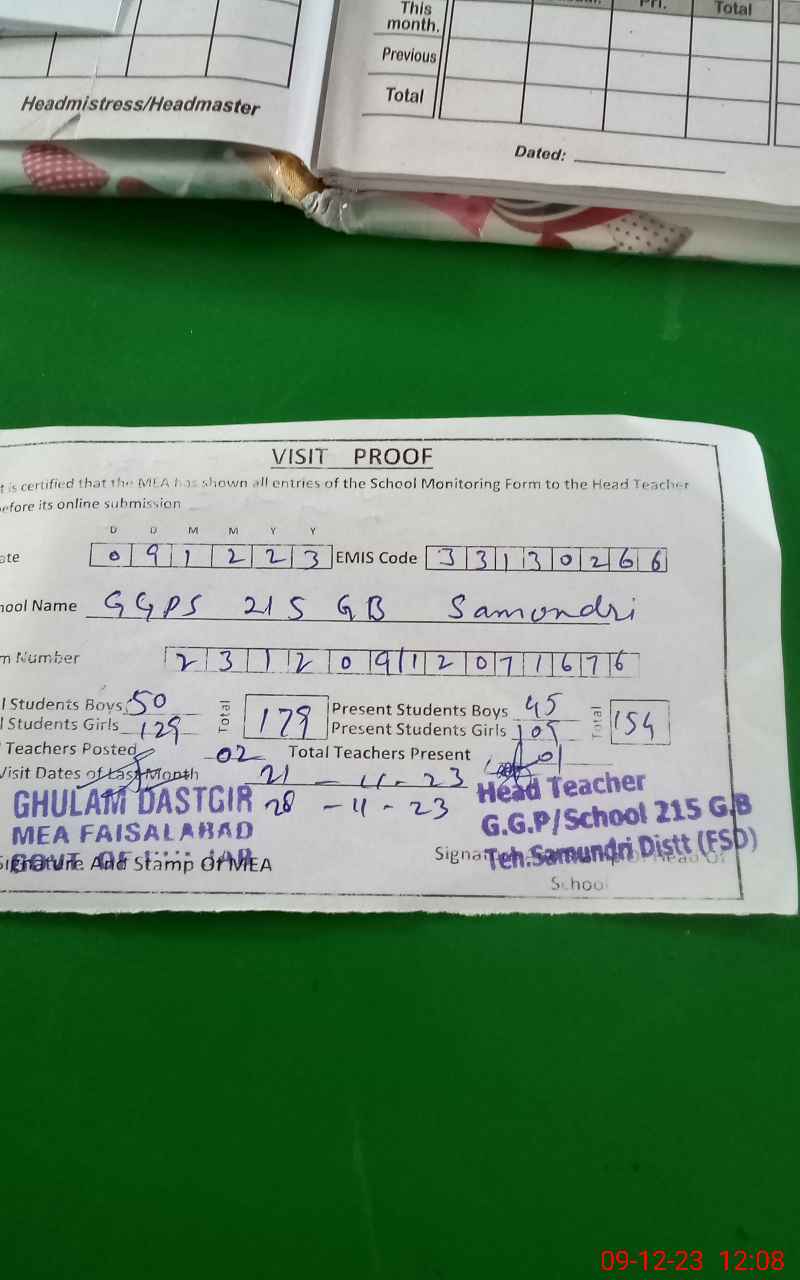 This month.
Pri. Total
Previous
Total
Headmistress/Headmaster
Dated:
VISIT PROOF
t is certified that the MEA has shown all entries of the School Monitoring Form to the Head Teacher
efore its online submission
D D M M Y Y
ate 0 9 1 2 2 3 EMIS Code 3 3 1 3 0 2 6 6
hool Name GGPS 215 GB Samondri
m Number 2 3 1 2 0 9 1 2 0 7 1 6 7 6
l Students Boys 50 Total 179 Present Students Boys 45 Total 154
l Students Girls 129 Present Students Girls 109
Teachers Posted 02 Total Teachers Present 01
Visit Dates of Last Month 21 - 11 - 23
28 - 11 - 23
GHULAM DASTGIR
MEA FAISALABAD
GOVT OF
Signature And Stamp Of MEA
Head Teacher
G.G.P/School 215 G.B
Teh.Samundri Distt (FSD)
Head Of
School
09-12-23 12:08